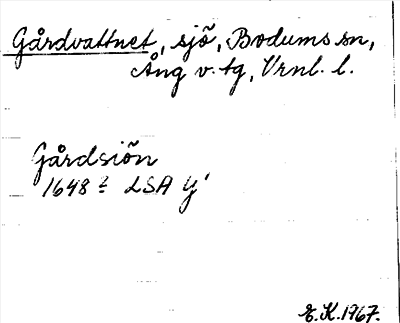 Gårdvattnet, sjö, Bodums sn,
Ång v. tg, Vrnl. l.
Gårdsiön
1648 ? LSA Y¹
E.K. 1967.